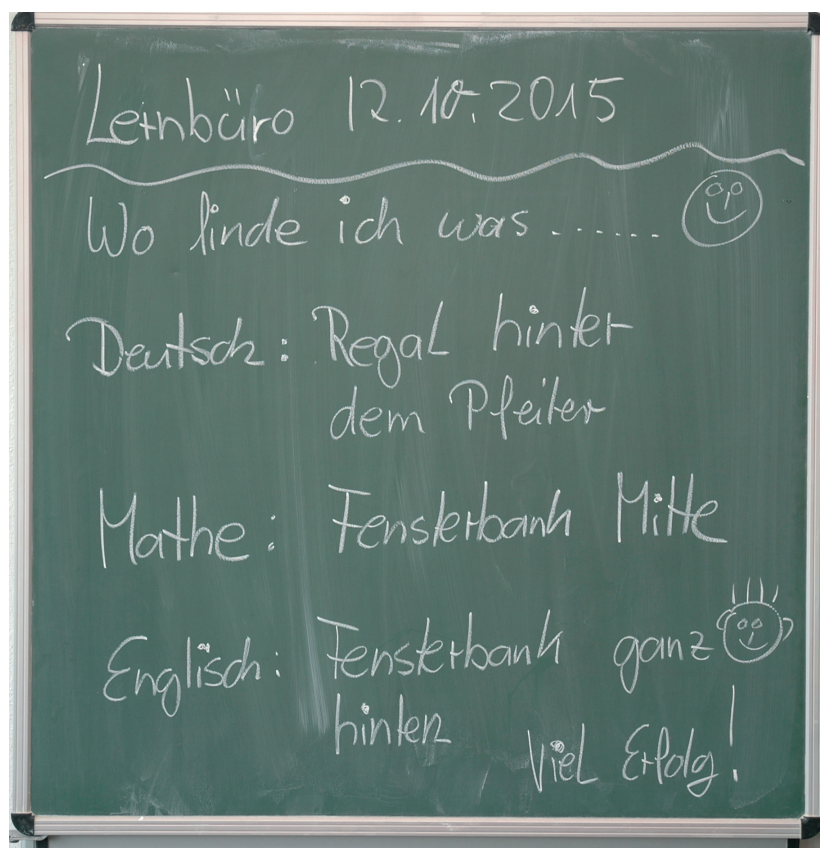 Lernbüro 12.10.2015
Wo finde ich was ......
Deutsch: Regal hinter
dem Pfeiler
Mathe: Fensterbank Mitte
Englisch: Fensterbank ganz
hinten
Viel Erfolg!